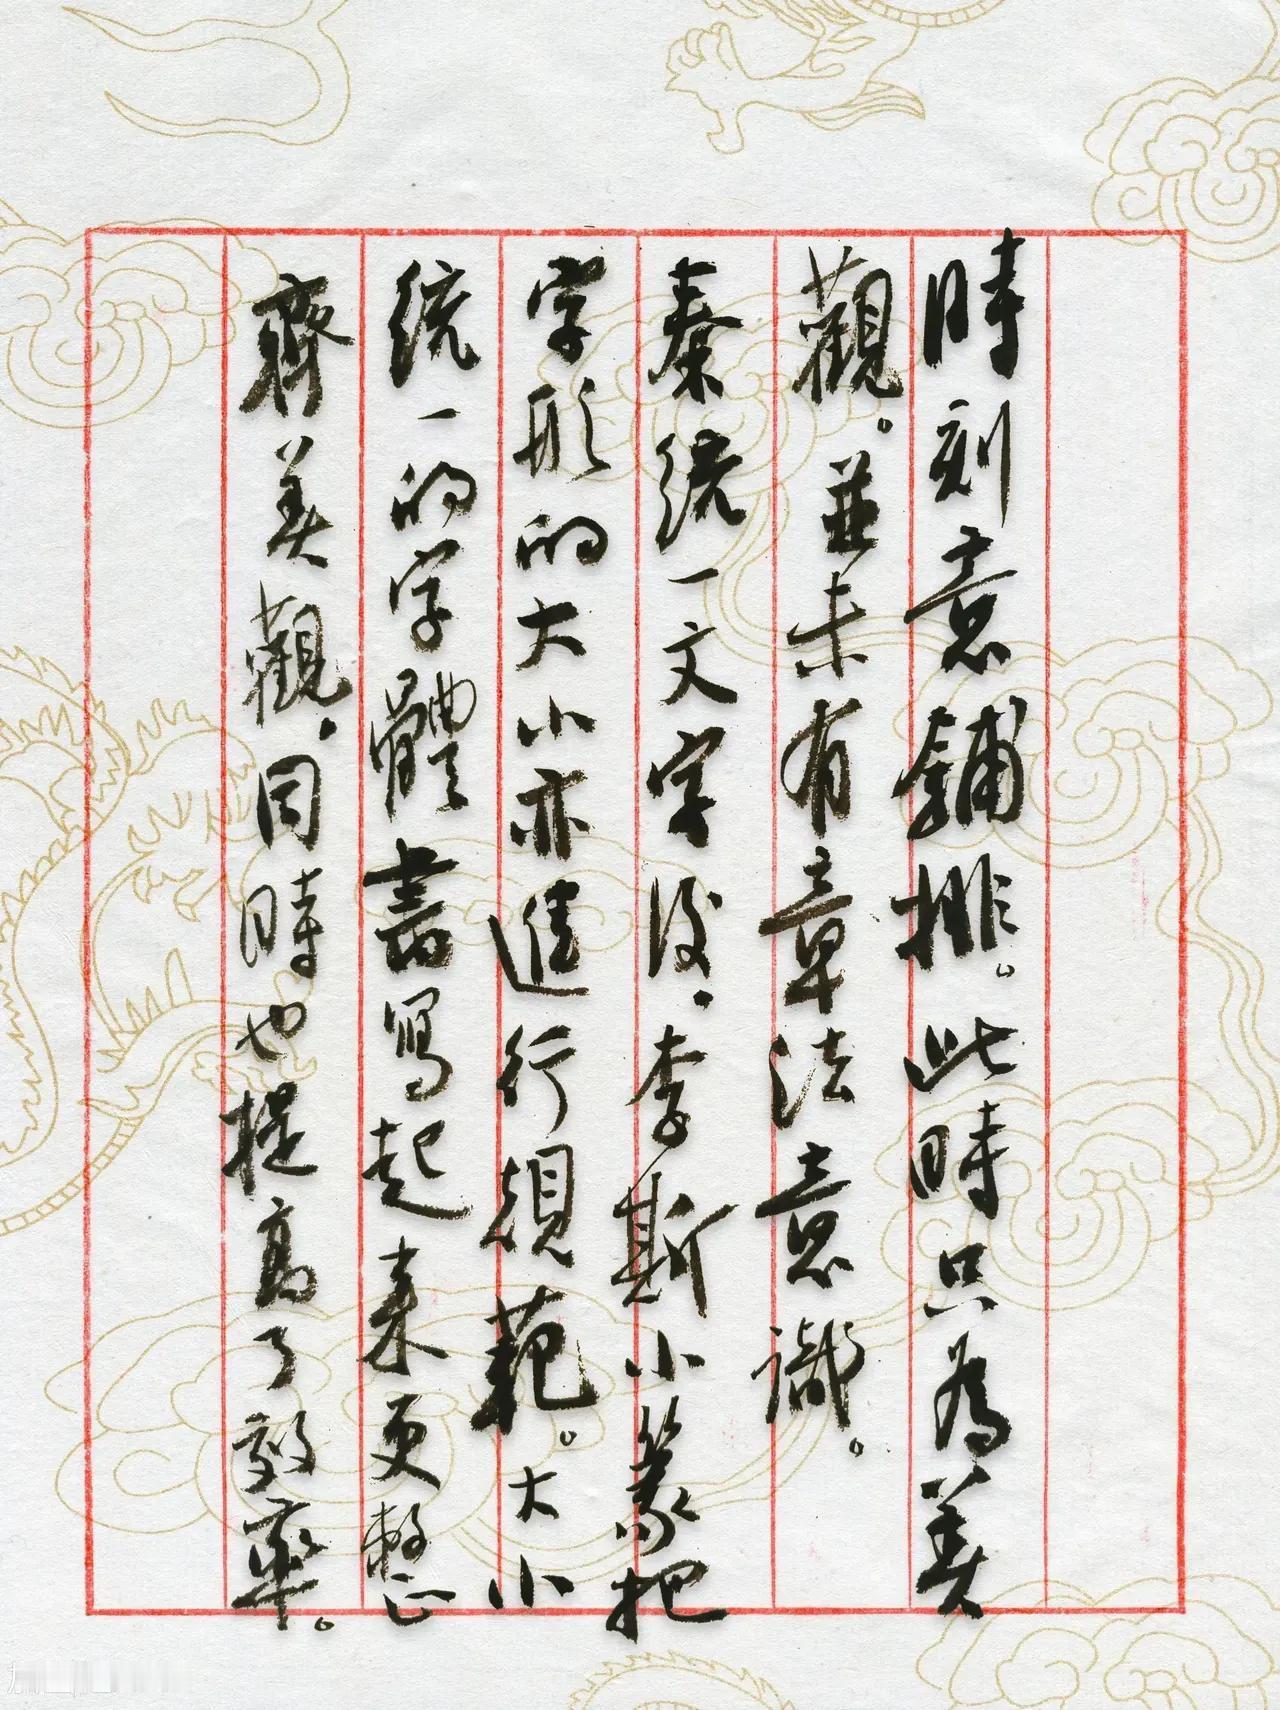 時刻意鋪排。此時只為美
觀。並未有章法意識。
秦統一文字後，李斯小篆把
字形的大小亦進行規範。大小
統一的字體書寫起來更整
齊美觀，同時也提高了效率。